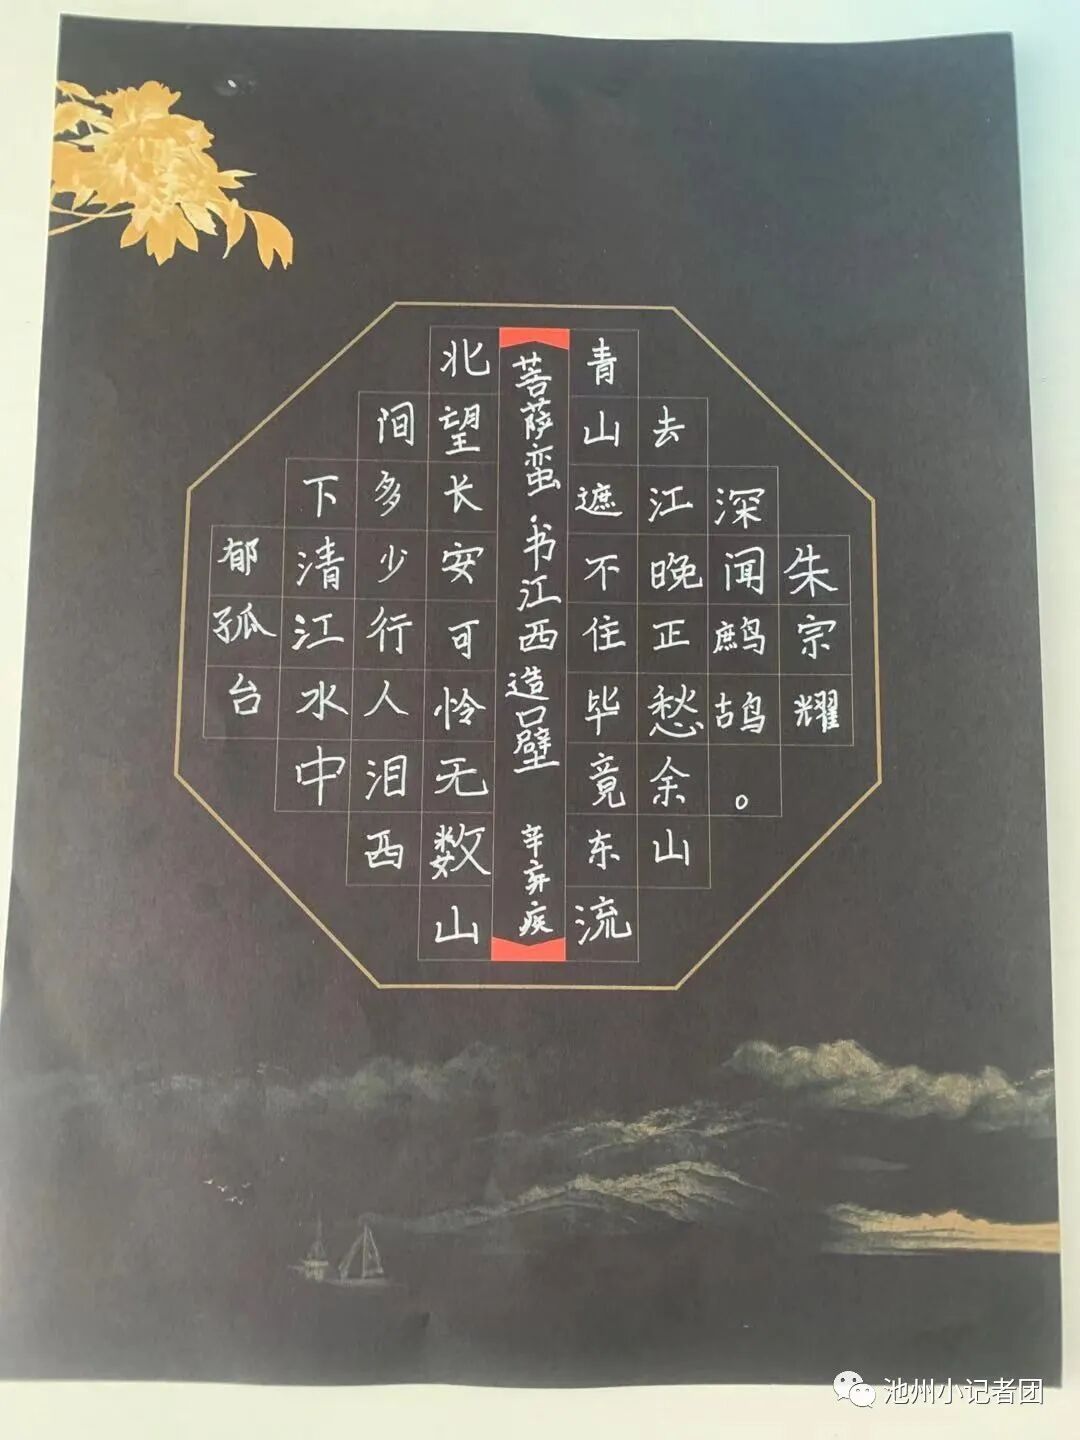 郁孤台
下清江水中
间多少行人泪西
北望长安可怜无数山
菩萨蛮·书江西造口壁 辛弃疾
青山遮不住毕竟东流
去江晚正愁余山
深闻鹧鸪。
朱宗耀
池州小记者团